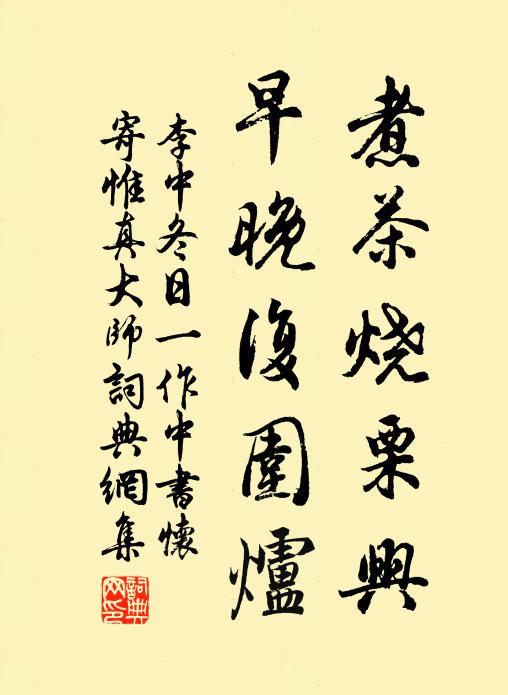 煮茶烧栗興
早晚復圍爐
李中冬日一作中書懷
寄惟真大師詞典網集
詞典网印